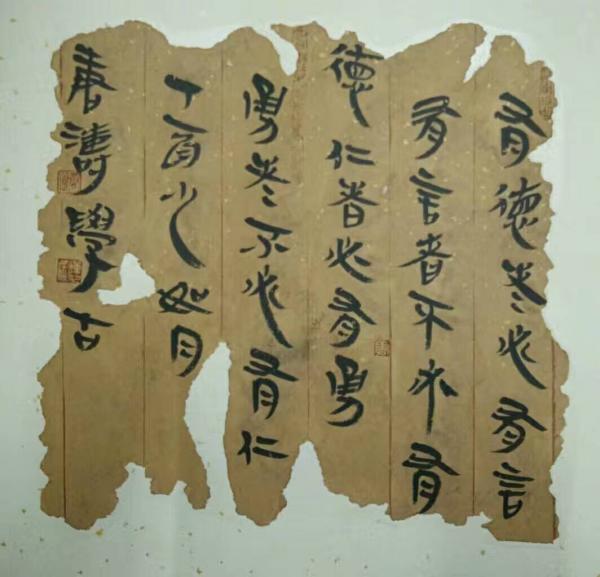 有德者必有言
有言者不必有
德仁者必有勇
勇者不必有仁
丁酉如月
濤學古